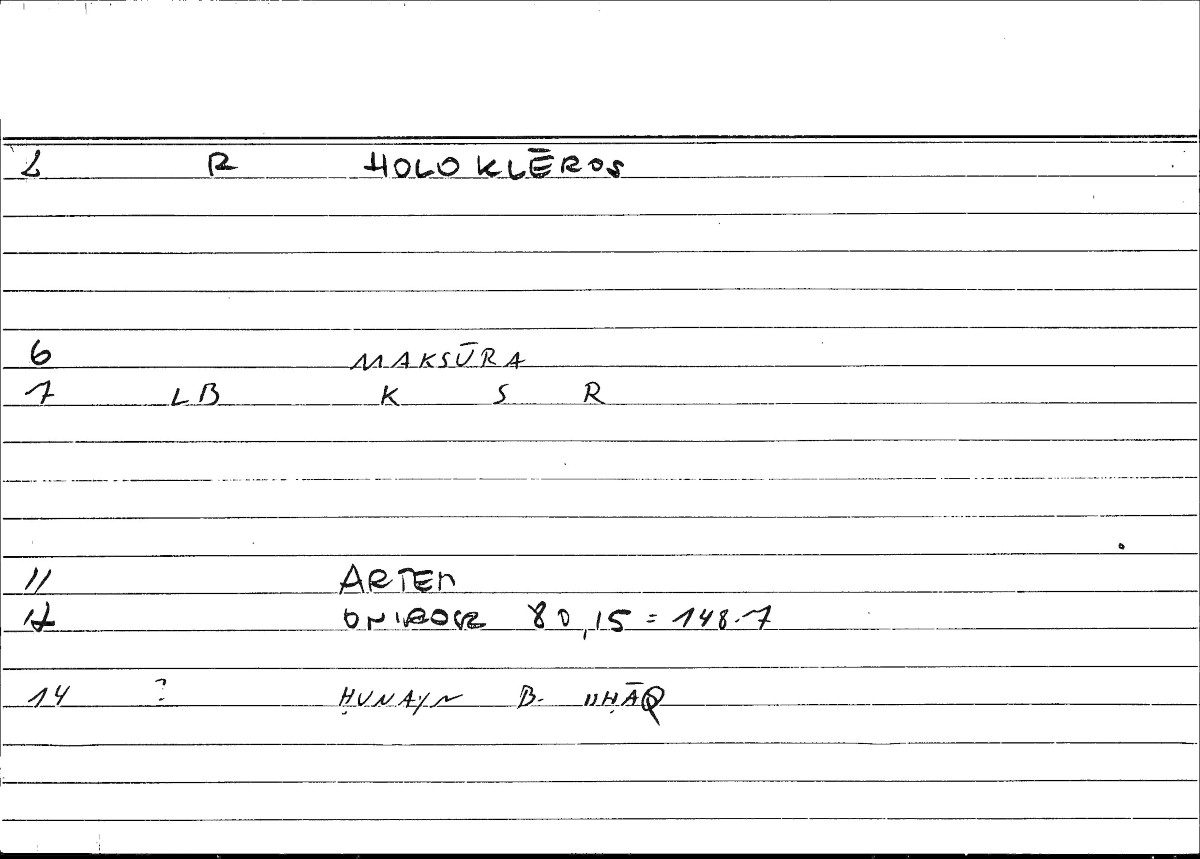 2 R HOLOKLĒROS
6 MAKSŪRA
7 LB K S R
11 ARTEM
12 ONIROCR 80,15 = 148.7
14 ? ḤUNAYN B. ISḤĀQ